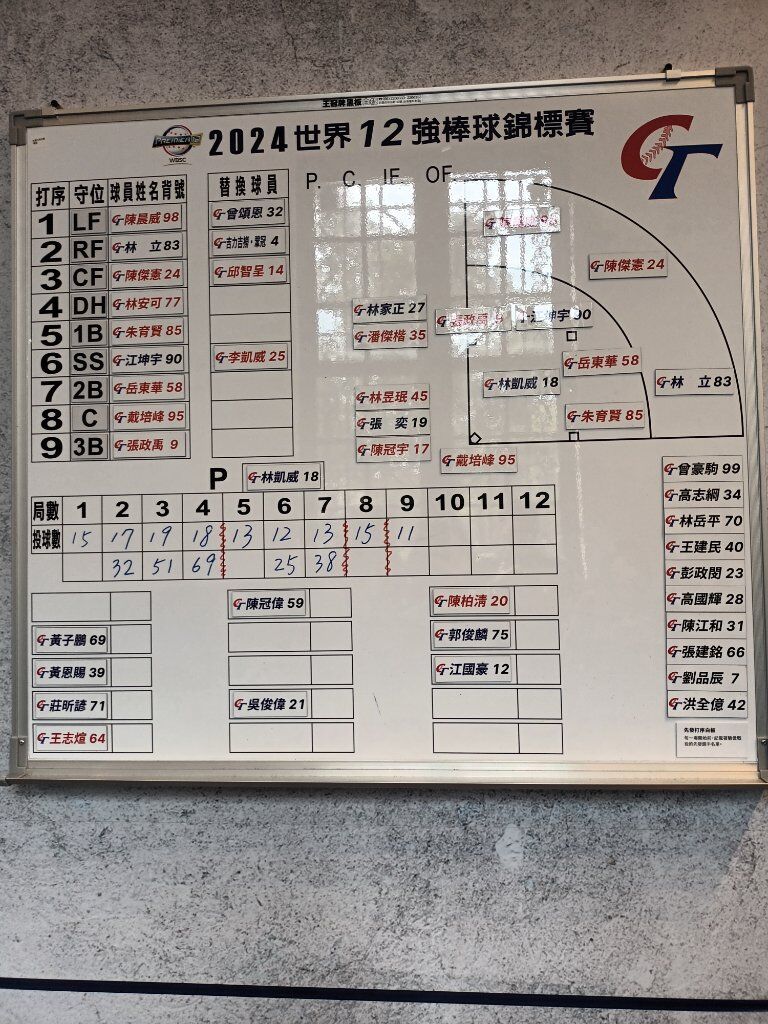 王冠牌黑板
PREMIER12
WBSC
2024 世界12強棒球錦標賽
CT
打序 守位 球員姓名背號
1 LF CT 陳晨威 98
2 RF CT 林 立 83
3 CF CT 陳傑憲 24
4 DH CT 林安可 77
5 1B CT 朱育賢 85
6 SS CT 江坤宇 90
7 2B CT 岳東華 58
8 C CT 戴培峰 95
9 3B CT 張政禹 9
替換球員
CT 曾頌恩 32
CT 吉力吉撈·鞏冠 4
CT 邱智呈 14
CT 李凱威 25
P. C. IF OF
98
CT 陳傑憲 24
CT 林家正 27
CT 潘傑楷 35
CT 張政禹 9
江坤宇 90
CT 岳東華 58
CT 林凱威 18
CT 林 立 83
CT 林昱珉 45
CT 張 奕 19
CT 陳冠宇 17
CT 朱育賢 85
CT 戴培峰 95
P CT 林凱威 18
局數 1 2 3 4 5 6 7 8 9 10 11 12
投球數 15 17 19 18 13 12 13 15 11
32 51 69 25 38
CT 黃子鵬 69
CT 黃恩賜 39
CT 莊昕諺 71
CT 王志煊 64
CT 陳冠偉 59
CT 吳俊偉 21
CT 陳柏清 20
CT 郭俊麟 75
CT 江國豪 12
CT 曾豪駒 99
CT 高志綱 34
CT 林岳平 70
CT 王建民 40
CT 彭政閔 23
CT 高國輝 28
CT 陳江和 31
CT 張建銘 66
CT 劉品辰 7
CT 洪全億 42
先發打序白板